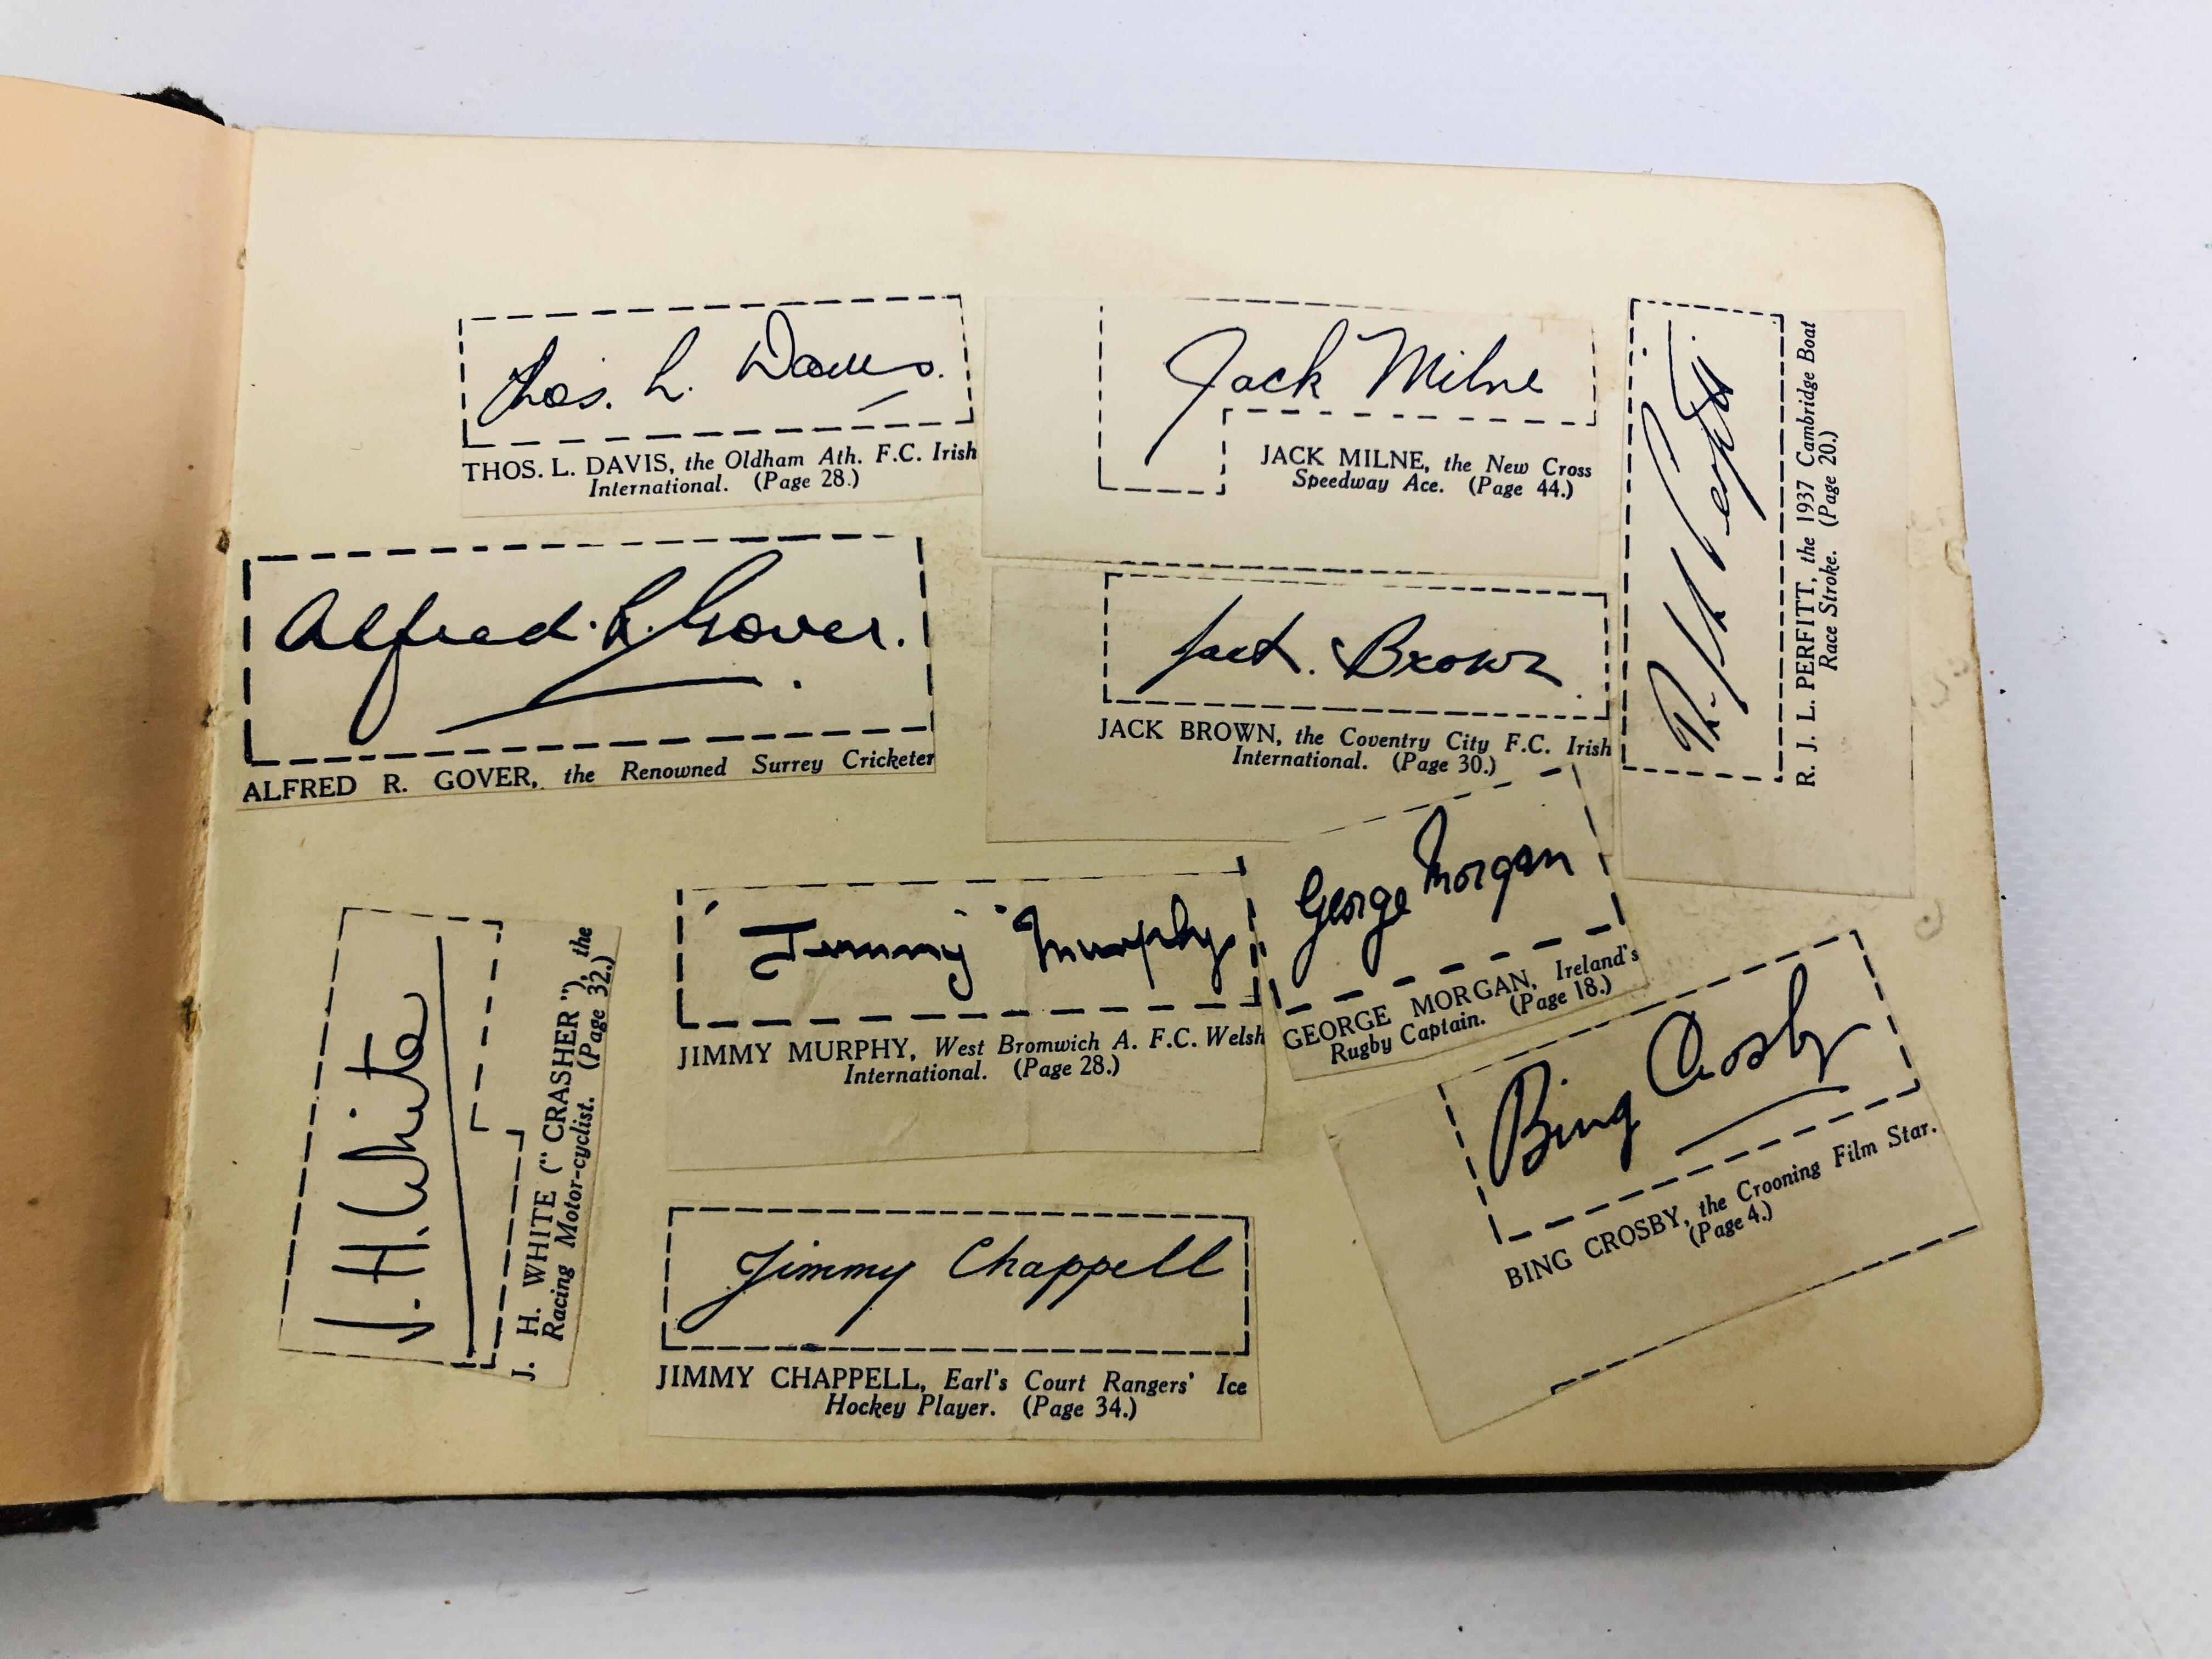 Thos. L. Davis.
THOS. L. DAVIS, the Oldham Ath. F.C. Irish
International. (Page 28.)
Jack Milne
JACK MILNE, the New Cross
Speedway Ace. (Page 44.)
R. J. L. PERFITT, the 1937 Cambridge Boat
Race Stroke. (Page 20.)
Alfred. R. Gover.
ALFRED R. GOVER, the Renowned Surrey Cricketer
Jack. Brown
JACK BROWN, the Coventry City F.C. Irish
International. (Page 30.)
J. H. White
J. H. WHITE (" CRASHER "), the
Racing Motor-cyclist. (Page 32.)
' Jimmy " Murphy
JIMMY MURPHY, West Bromwich A. F.C. Welsh
International. (Page 28.)
George Morgan
GEORGE MORGAN, Ireland's
Rugby Captain. (Page 18.)
Bing Crosby
BING CROSBY, the Crooning Film Star.
(Page 4.)
Jimmy Chappell
JIMMY CHAPPELL, Earl's Court Rangers' Ice
Hockey Player. (Page 34.)